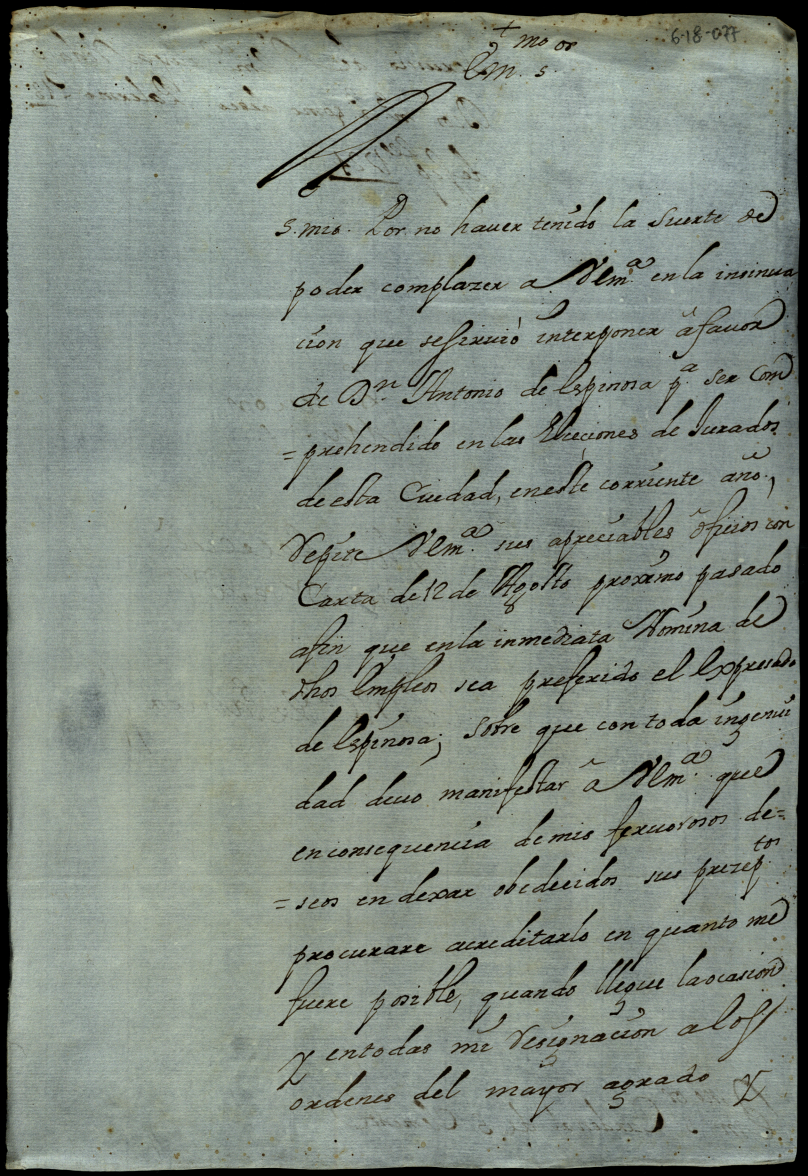 6-18-077
+
Em.mo s.or
S. mio. Por no haver tenido la suerte de
poder complazer a VEm.a en la insinua
cion que se sirvió interponer â favor
de D.n Antonio de Espinosa p.a ser Com
=prehendido en las Elecciones de Jurados
de esta Ciudad, en este corriente año,
Repite VEm.a sus apreciables ôficios con
Carta de 12 de Agosto proximo pasado
afin que en la inmediata Nomina de
dhos Empleos sea preferido el Expresado
de Espinosa; sobre que con toda ingenui
dad devo manifestar â VEm.a que
en consequencia de mis fervorosos de=
=seos en dexar obedecidos sus prezep.tos
procurare acreditarlo en quanto me
fuere posible, quando llegue la ocasion
Y en todas mi Resignacion a los
ordenes del mayor agrado Y